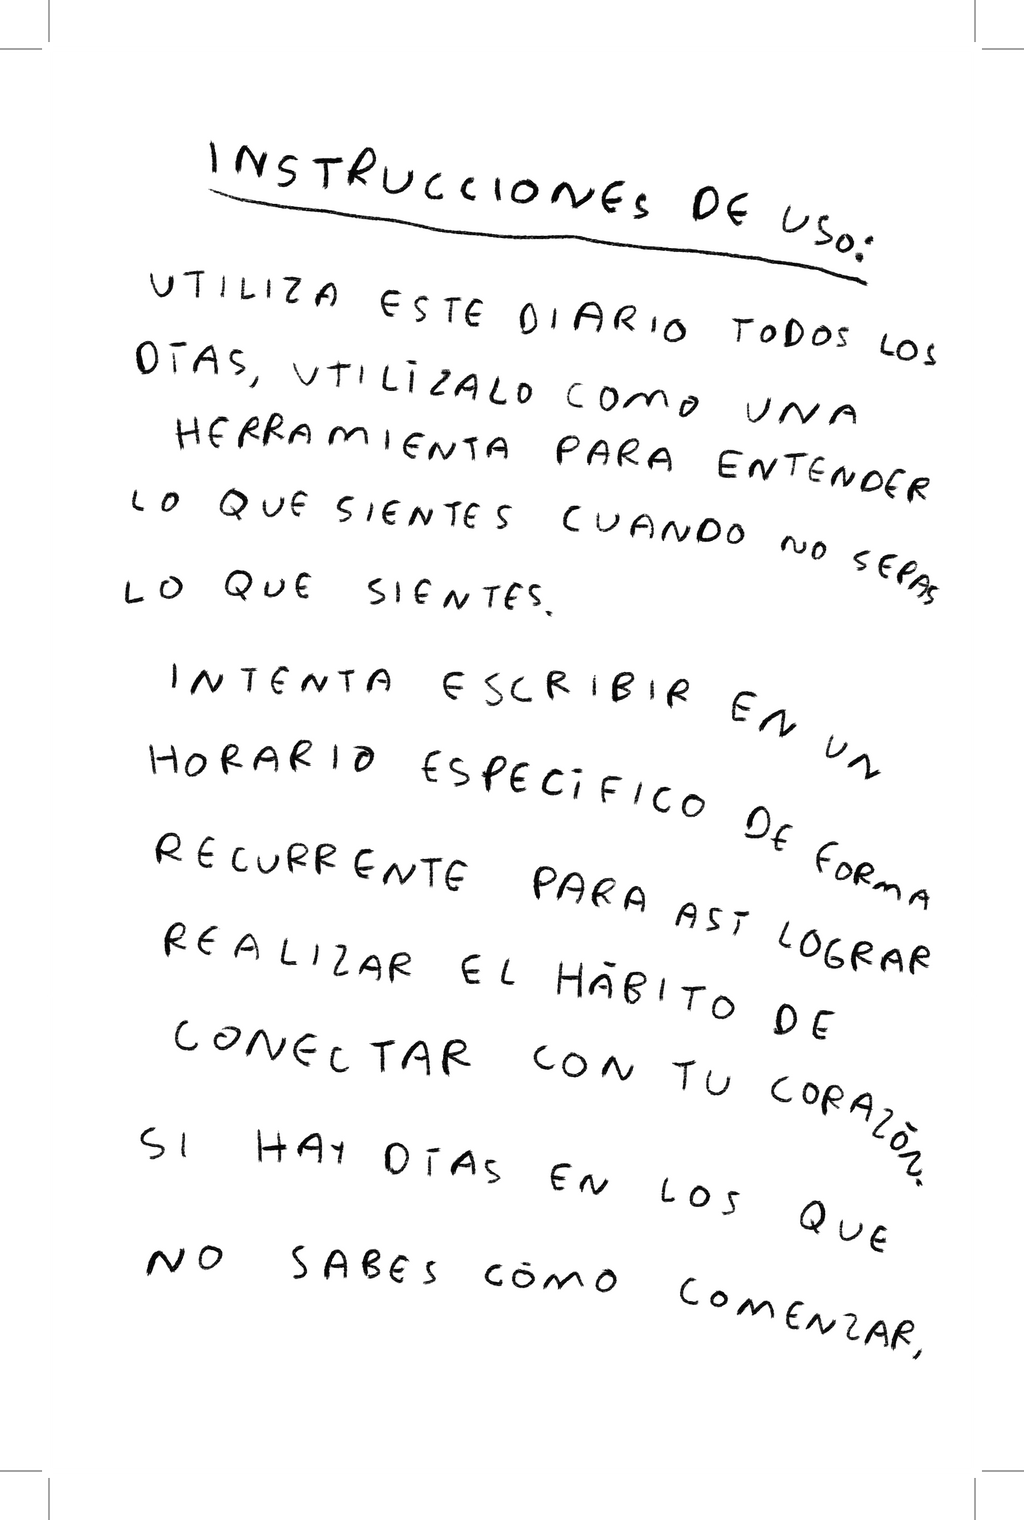 INSTRUCCIONES DE USO:
UTILIZA ESTE DIARIO TODOS LOS
DÍAS, UTILÍZALO COMO UNA
HERRAMIENTA PARA ENTENDER
LO QUE SIENTES CUANDO NO SEPAS
LO QUE SIENTES.
INTENTA ESCRIBIR EN UN
HORARIO ESPECÍFICO DE FORMA
RECURRENTE PARA ASÍ LOGRAR
REALIZAR EL HÁBITO DE
CONECTAR CON TU CORAZÓN.
SI HAY DÍAS EN LOS QUE
NO SABES CÓMO COMENZAR,